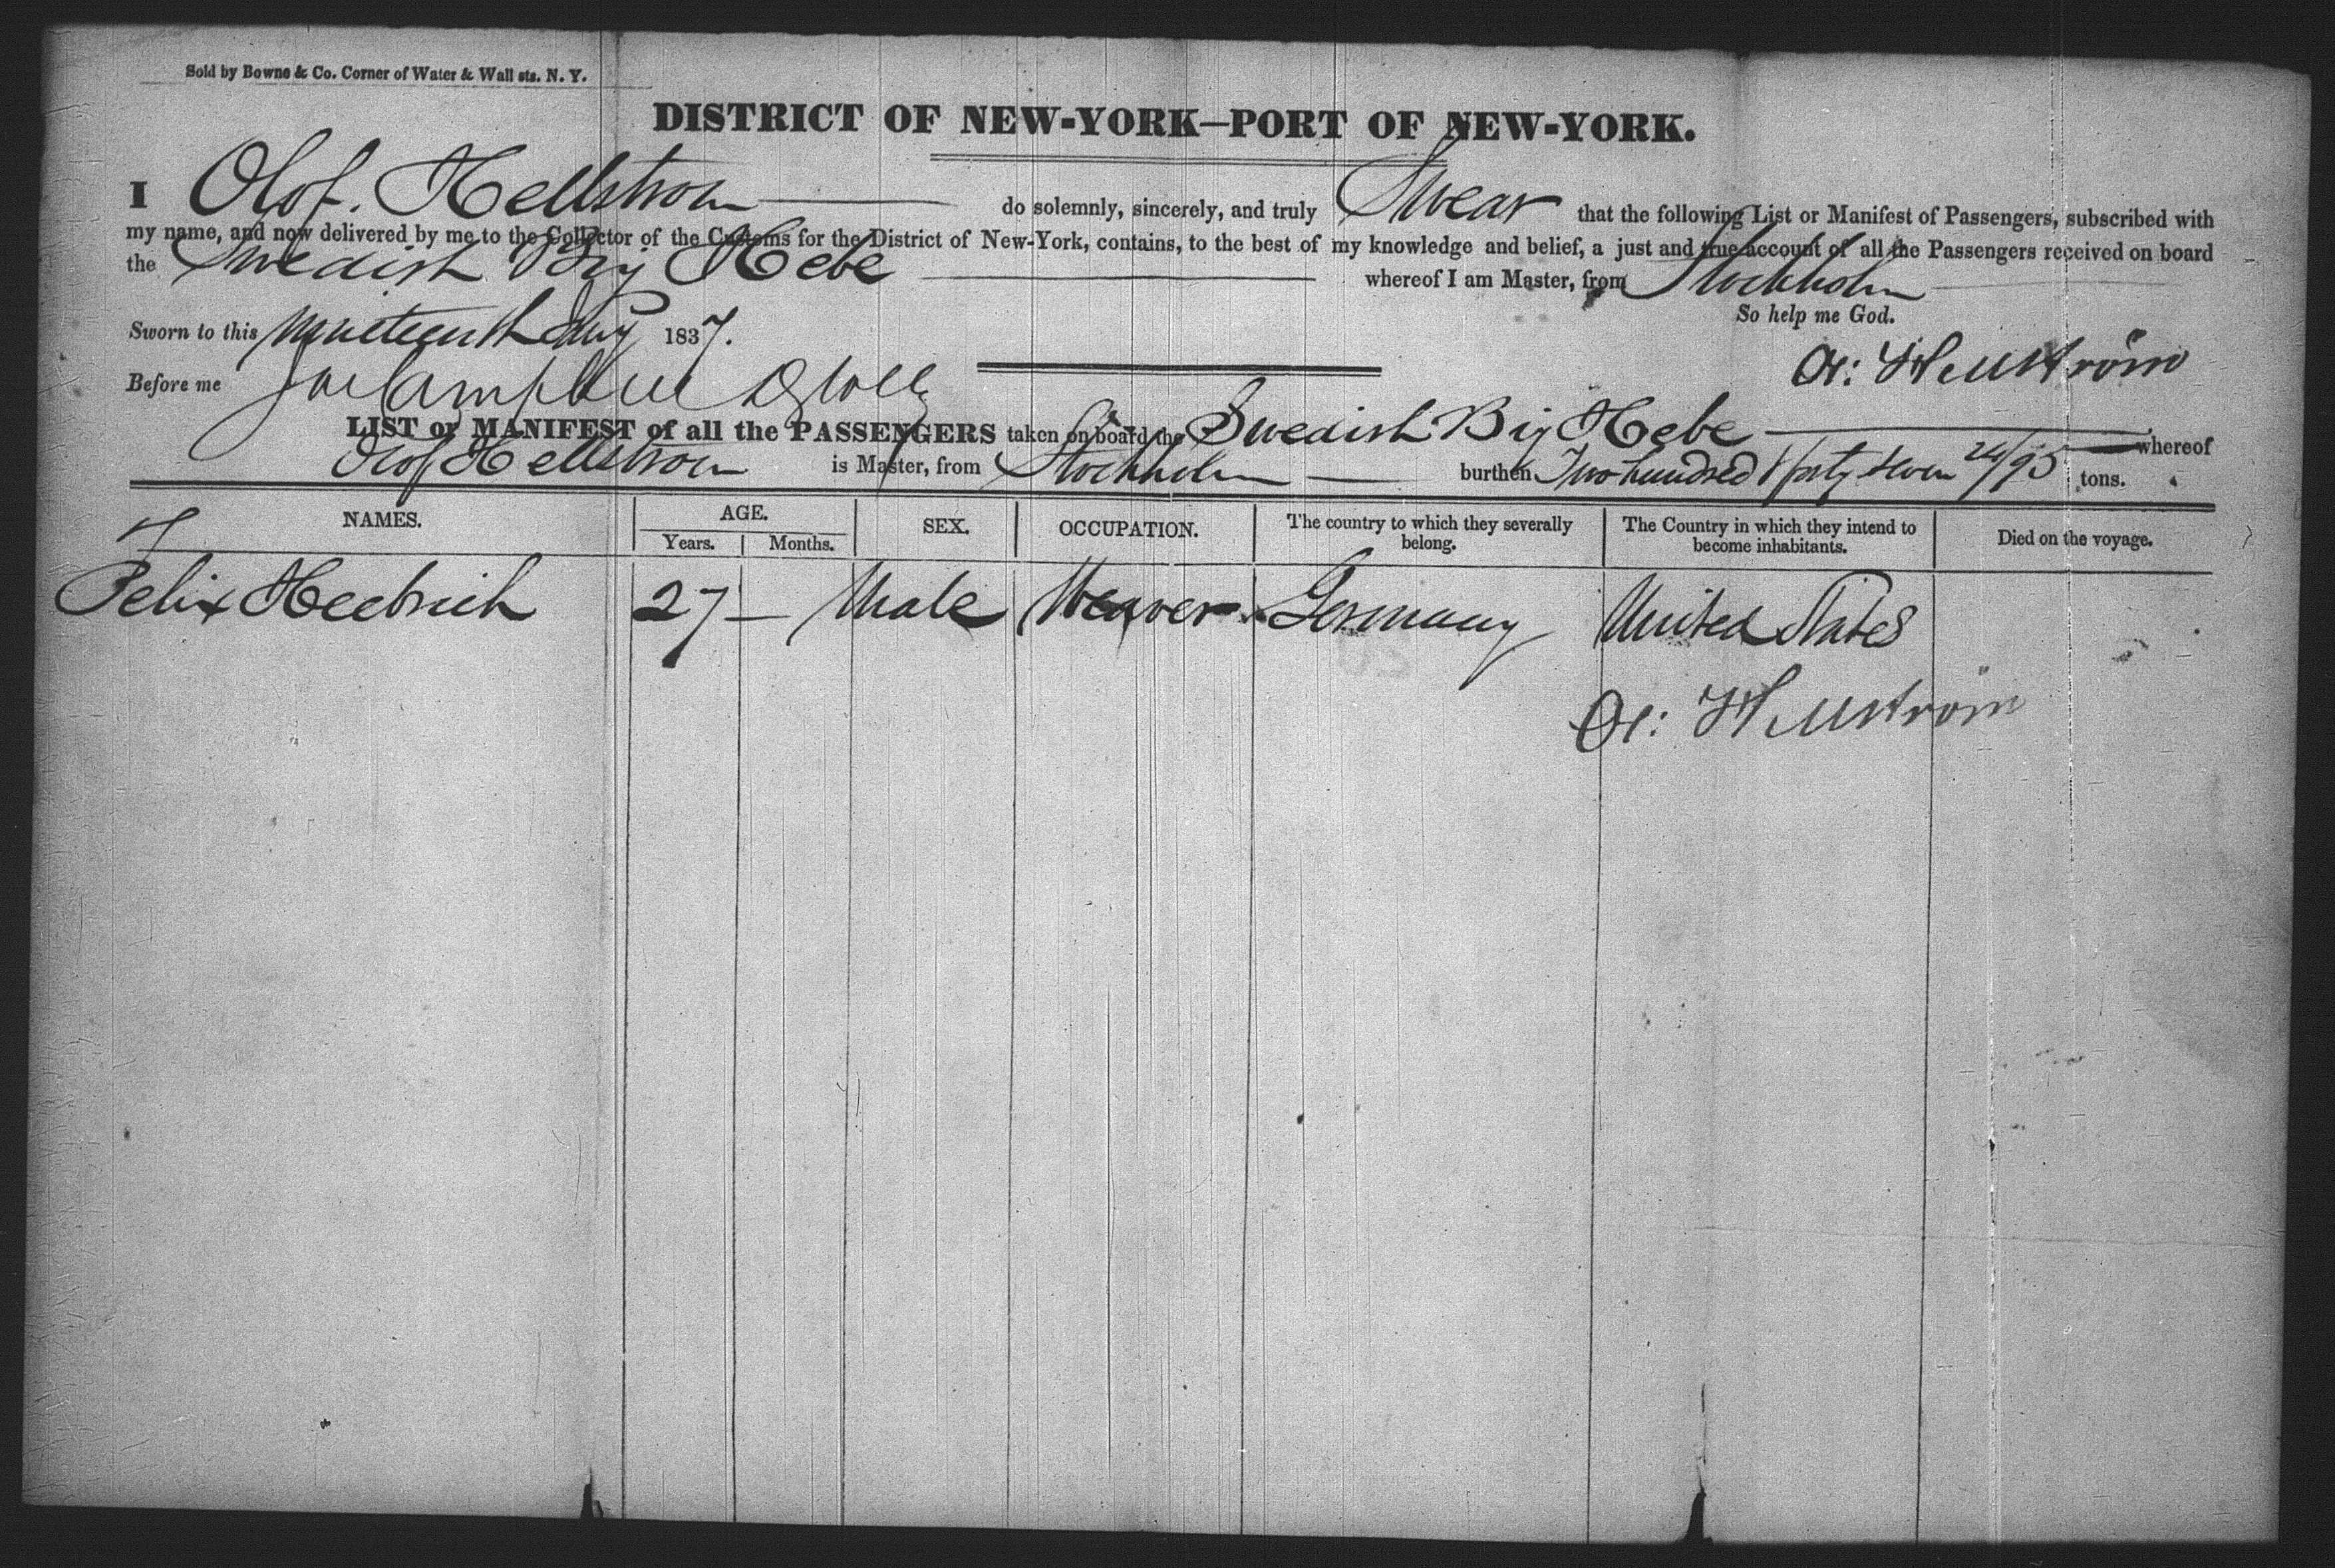 Sold by Bowne & Co. Corner of Water & Wall sts. N. Y.
DISTRICT OF NEW-YORK—PORT OF NEW-YORK.
I Olof. Hellstrom do solemnly, sincerely, and truly Swear that the following List or Manifest of Passengers, subscribed with
my name, and now delivered by me to the Collector of the Customs for the District of New-York, contains, to the best of my knowledge and belief, a just and true account of all the Passengers received on board
the Swedish Brig Hebe whereof I am Master, from Stockholm
So help me God.
Sworn to this nineteenth Aug 1837.
Ol: Hellström
Before me
LIST or MANIFEST of all the PASSENGERS taken on board the Swedish Brig Hebe whereof
Olof Hellstrom is Master, from Stockholm burthen Two hundred & forty seven 24/95 tons.
NAMES. AGE. SEX. OCCUPATION. The country to which they severally belong. The Country in which they intend to become inhabitants. Died on the voyage.
Years. Months.
Felix 27 — Male Weaver Germany United States
Ol: Hellström